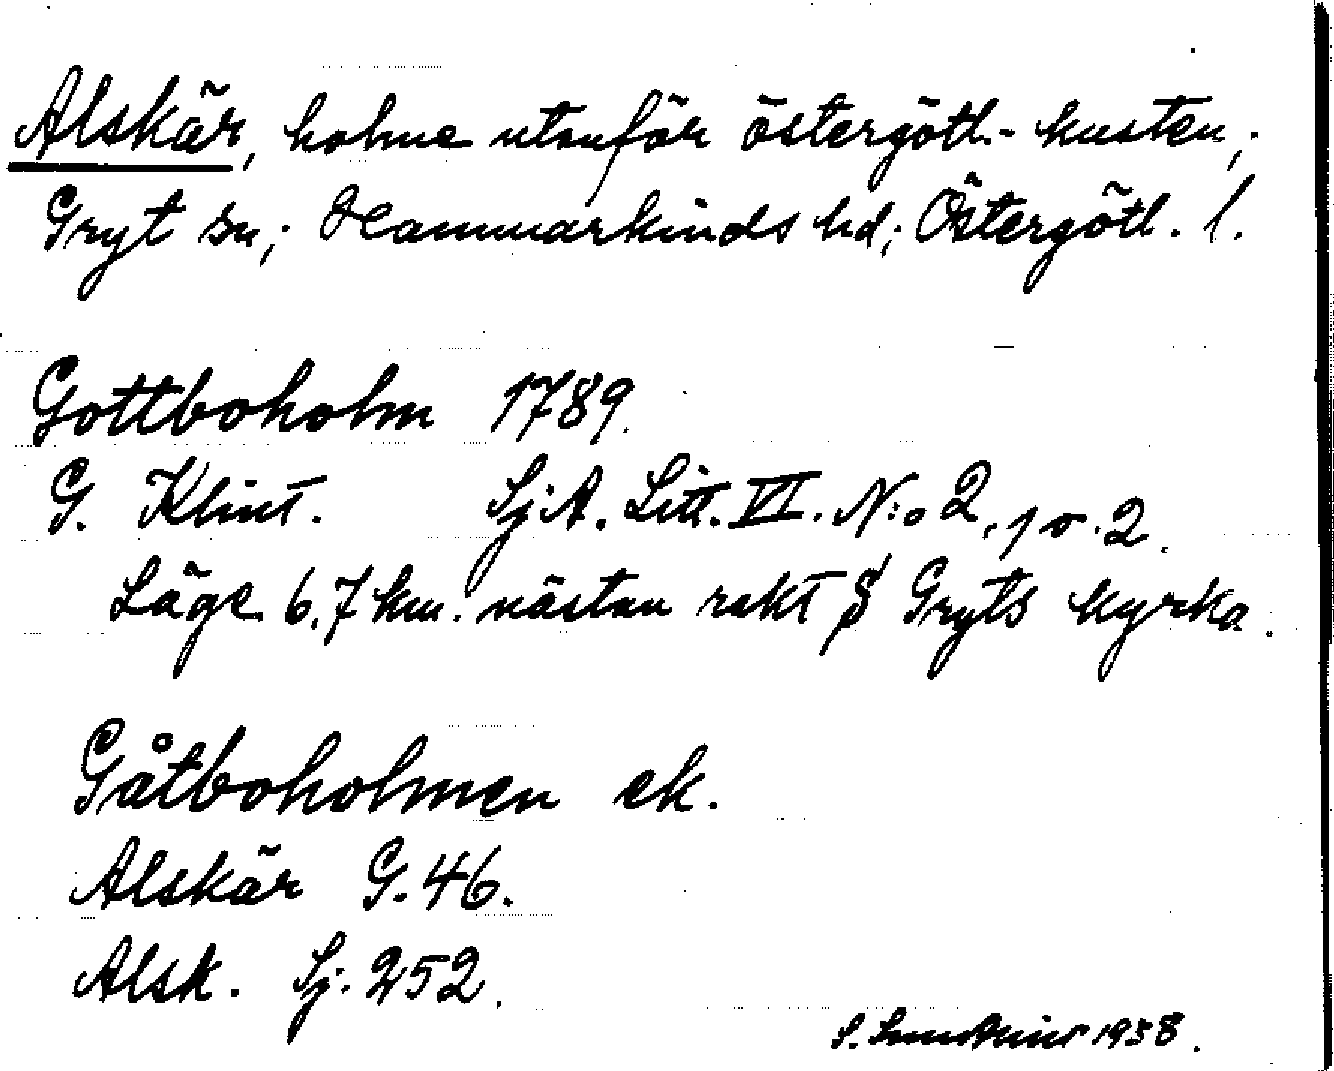 Alskär, holme utanför östergötl.- kusten,.
Gryt sn; Hammarkinds hd; Östergötl. l.
Gottboholm 1789.
G. Klint. SjA. Litt. VI. N:o 2, 1 o. 2.
Läge 6,7 km. nästan rakt S Gryts kyrka.
Gåtboholmen ek.
Alskär G. 46.
Alsk. Sj. 252.
S. 1938.